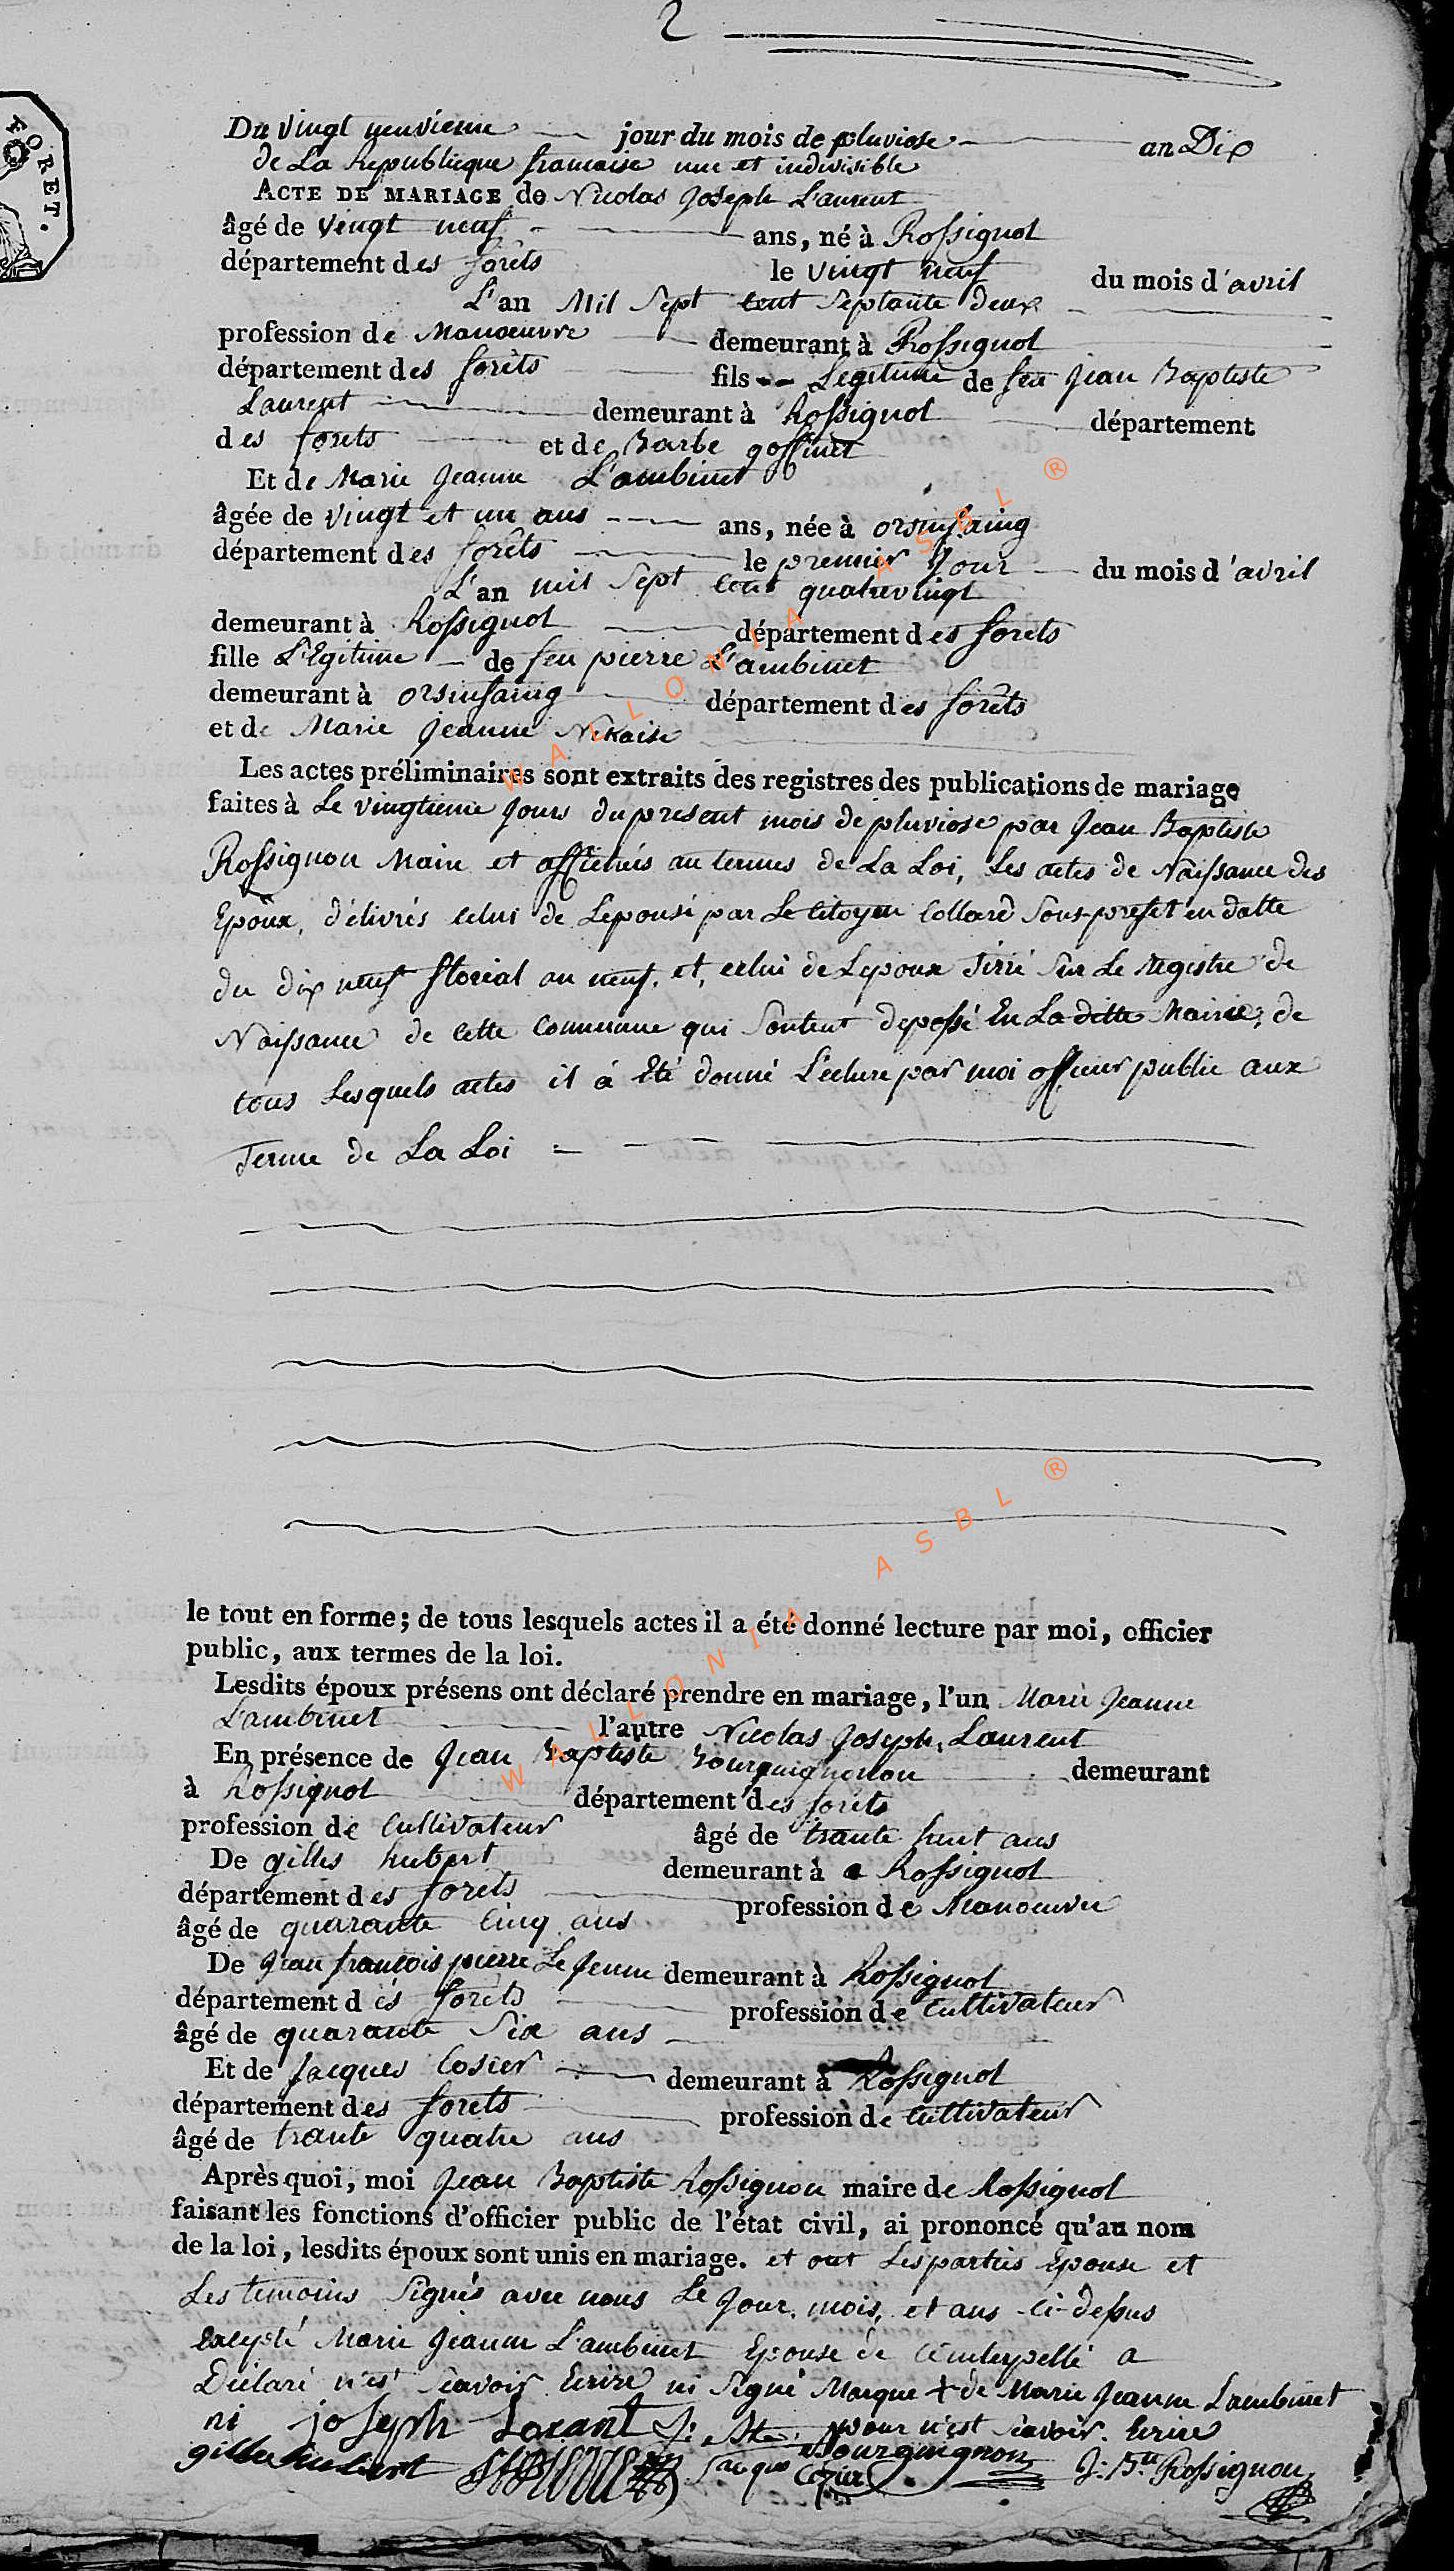 2
FORET.
Du vingt neuvieme jour du mois de pluviose an Dix
de La Republicque francaise une et indivisible
ACTE DE MARIAGE de Nicolas Joseph Laurent
âgé de vingt neuf ans, né à Rossignol
département des forêts le vingt neuf du mois d'avril
L'an Mil Sept cent Septante deux
profession de Manoeuvre demeurant à Rossignol
département des forêts fils Legitime de feu Jean Baptiste
Laurent demeurant à Rossignol département
des forets et de Barbe goffinet
Et de Marie Jeanne L'ambinet
âgée de vingt et un ans ans, née à orsinfaing
département des forêts le premier Jour du mois d'avril
L'an mil Sept cent quatrevingt
demeurant à Rossignol département des forets
fille L'Egitime de feu pierre L'ambinet
demeurant à orsinfaing département des forêts
et de Marie Jeanne Nikaise
Les actes préliminaires sont extraits des registres des publications de mariage
faites à Le vingtieme Jours du present mois de pluviose par Jean Baptiste
Rossignon Maire et affichés au termes de La Loi, Les actes de Naissance des
Epoux, délivrés celui de Lepousé par Le Citoyen Collard Sous-prefet en datte
du dix neuf floréal an neuf, et, celui de Lepoux Tirré Sur Le Registre de
Naissance de cette Commune qui Sontent deposé En La ditte Mairie; de
tous Lesquels actes il à Eté donné Lecture par moi officier public aux
Terme de La Loi
le tout en forme; de tous lesquels actes il a été donné lecture par moi, officier
public, aux termes de la loi.
Lesdits époux présens ont déclaré prendre en mariage, l'un Marie Jeanne
L'ambinet l'autre Nicolas Joseph Laurent
En présence de Jean Baptiste Bourguignonon demeurant
à Rossignol département des forêts
profession de Cultivateur âgé de trante huit ans
De gilles hubert demeurant à Rossignol
département des forets profession de Manoeuvre
âgé de quarante Cinq ans
De Jean francois pierre Le Jeune demeurant à Rossignol
département des forêts profession de Cultivateur
âgé de quarante Six ans
Et de Jacques Cosier demeurant à Rossignol
département des forets profession de Cultivateur
âgé de trante quatre ans
Après quoi, moi Jean Baptiste Rossignon maire de Rossignol
faisant les fonctions d'officier public de l'état civil, ai prononcé qu'au nom
de la loi, lesdits époux sont unis en mariage. et ont Les parties Epouse et
Les temoins Signés avec nous Le Jour, mois, et ans ci-dessus
Excepté Marie Jeanne L'ambinet Epouse de Cinterpellé a
Déclaré n'est Scavoir Ecrire ni Signé Marque + de Marie Jeanne Lambinet
pour n'est Scavoir Ecrire
ni joseph Lorant
Bourguignon
gilles hubert Jacque Cozier J: Bte Rossignon
WALLONIA ASBL ®
WALLONIA ASBL ®